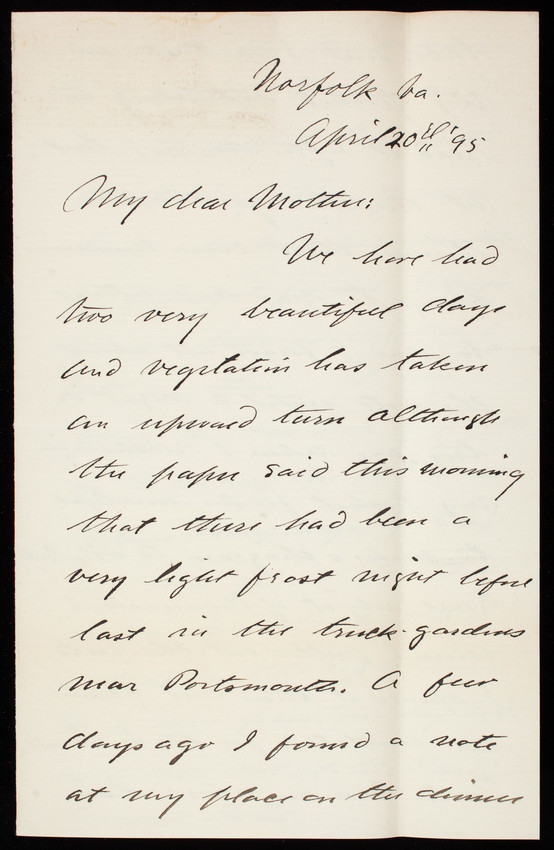 Norfolk Va.
April 20th '95
My dear Mother:
We have had
two very beautiful days
and vegetation has taken
an upward turn although
the paper said this morning
that there had been a
very light frost night before
last in the truck-gardens
near Portsmouth. A few
days ago I found a note
at my place on the dinner